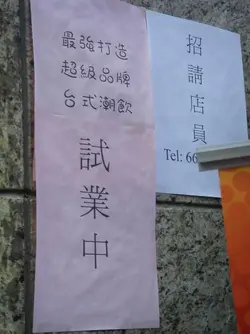 最強打造
超級品牌
台式潮飲
試業中
招請店員
Tel: 66